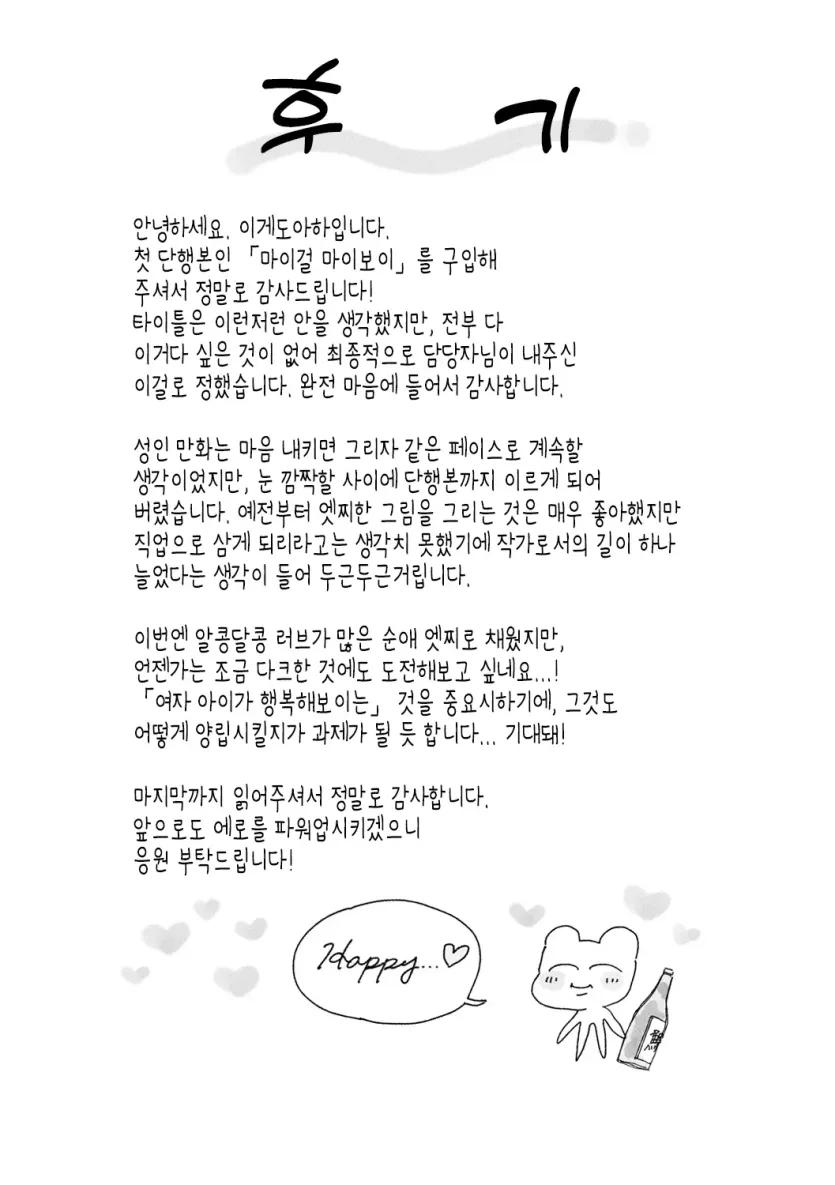 후 기
안녕하세요. 이게도아하입니다.
첫 단행본인 「마이걸 마이보이」를 구입해
주셔서 정말로 감사드립니다!
타이틀은 이런저런 안을 생각했지만, 전부 다
이거다 싶은 것이 없어 최종적으로 담당자님이 내주신
이걸로 정했습니다. 완전 마음에 들어서 감사합니다.
성인 만화는 마음 내키면 그리자 같은 페이스로 계속할
생각이었지만, 눈 깜짝할 사이에 단행본까지 이르게 되어
버렸습니다. 예전부터 엣찌한 그림을 그리는 것은 매우 좋아했지만
직업으로 삼게 되리라고는 생각치 못했기에 작가로서의 길이 하나
늘었다는 생각이 들어 두근두근거립니다.
이번엔 알콩달콩 러브가 많은 순애 엣찌로 채웠지만,
언젠가는 조금 다크한 것에도 도전해보고 싶네요...!
「여자 아이가 행복해보이는」 것을 중요시하기에, 그것도
어떻게 양립시킬지가 과제가 될 듯 합니다... 기대돼!
마지막까지 읽어주셔서 정말로 감사합니다.
앞으로도 에로를 파워업시키겠으니
응원 부탁드립니다!
Happy...♡